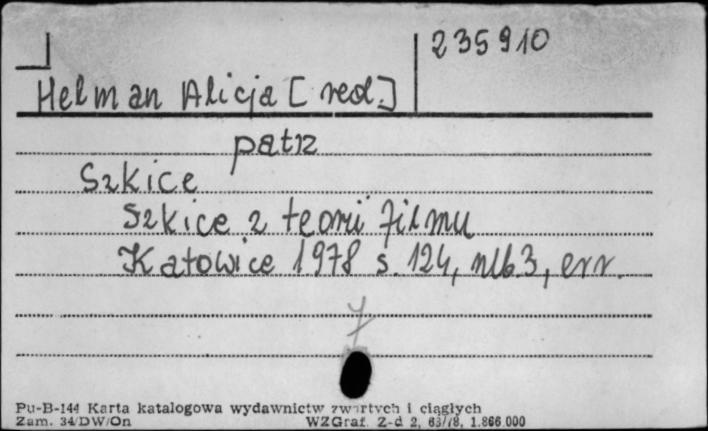 235910
Helman Alicja [red.]
patrz
Szkice
Szkice z teorii filmu
Katowice 1978 s. 124, nlb. 3, err.
7
Pu-B-144 Karta katalogowa wydawnictw zwartych i ciągłych
Zam. 34/DW/On WZGraf. Z-d 2, 63/78, 1.866.000